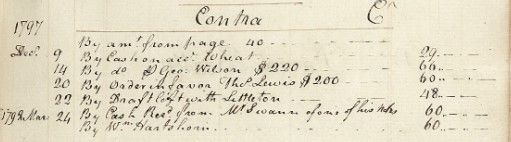 1797 Contra Cr
By amt. from page 40
Decr. 9 By Cash on acct. Wheat 29
14 By do. P Geo. Wilson $220 66
20 By Order in favor Tho. Lewis $200 60
22 By Draft left with Littleton 48
1798 Mar. 24 By Cash Recd. from Mr Swann of one of his Notes 60
By Wm. Hartshorn 60